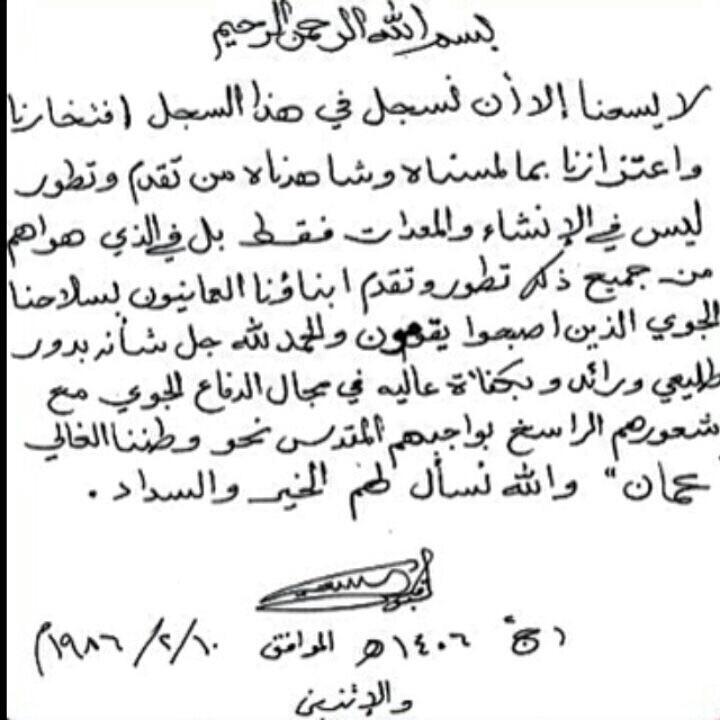 بسم الله الرحمن الرحيم
لا يسعنا إلا أن نسجل في هذا السجل افتخارنا
واعتزازنا بما لمسناه وشاهدناه من تقدم وتطور
ليس في الإنشاء والمعدات فقط بل في الذي هو اهم
من جميع ذلك تطور وتقدم ابناؤنا العمانيون بسلاحنا
الجوي الذين اصبحوا يقومون ولله الحمد جل شأنه بدور
طليعي ورائد وبكفاءة عاليه في مجال الدفاع الجوي مع
شعورهم الراسخ بواجبهم المقدس نحو وطننا الغالي
عمان" والله نسأل لهم الخير والسداد .
١٤٠٦ هـ الموافق ١٠/٢/١٩٨٦م
والإثنين